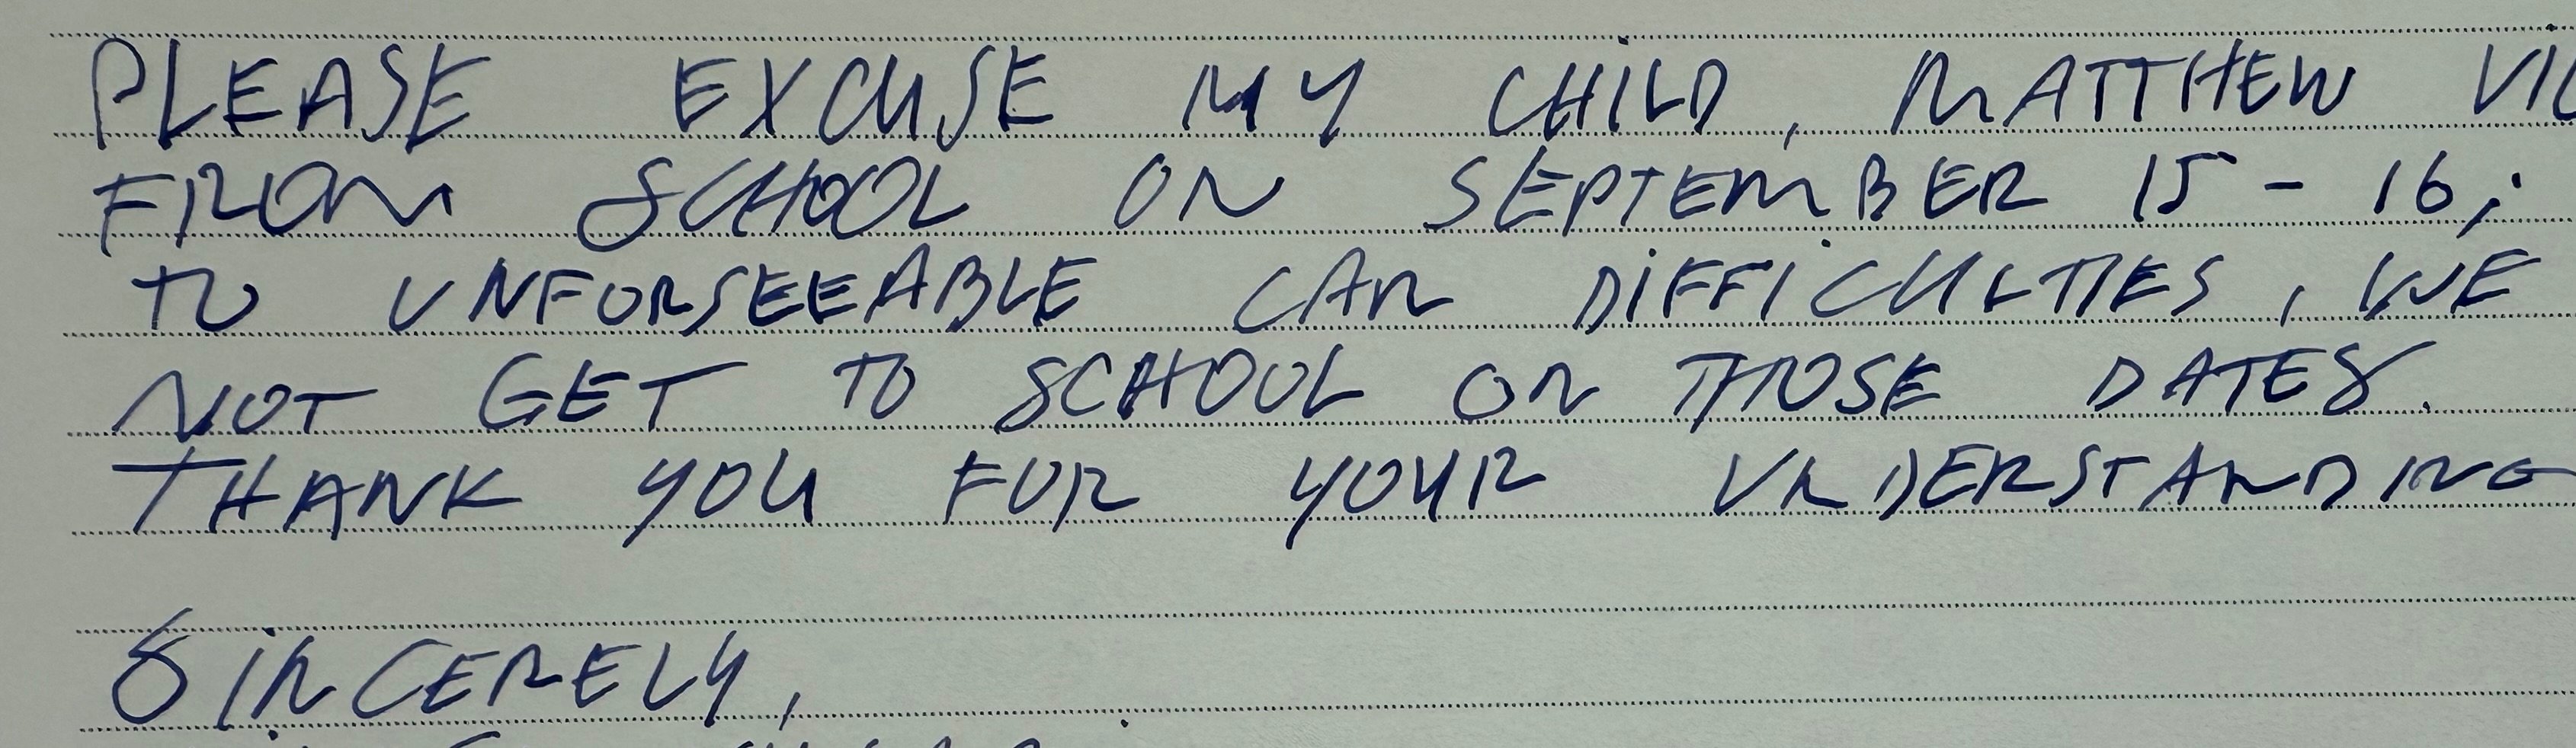 PLEASE EXCUSE MY CHILD, MATTHEW
FROM SCHOOL ON SEPTEMBER 15 - 16;
TO UNFORSEEABLE CAR DIFFICULTIES, WE
NOT GET TO SCHOOL ON THOSE DATES.
THANK YOU FOR YOUR UNDERSTANDING
SINCERELY,